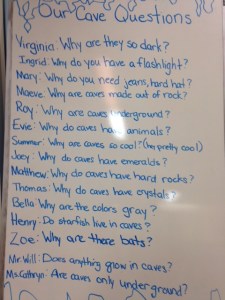 Our Cave Questions
Virginia: Why are they so dark?
Ingrid: Why do you have a flashlight?
Mary: Why do you need jeans, hard hat?
Maeve: Why are caves made out of rock?
Roy: Why are caves underground?
Evie: Why do caves have animals?
Summer: Why are caves so cool? (I'm pretty cool)
Joey: Why do caves have emeralds?
Matthew: Why do caves have hard rocks?
Thomas: Why do caves have crystals?
Bella: Why are the colors gray?
Henry: Do starfish live in caves?
Zoe: Why are there bats?
Mr. Will: Does anything grow in caves?
Ms. Cathryn: Are caves only underground?